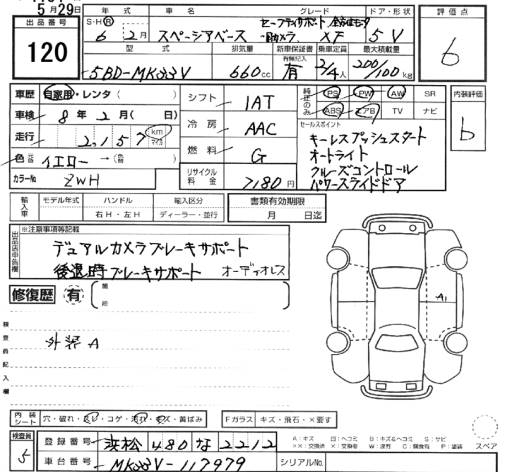 5月29日
出品番号
120
年式 車名 グレード ドア・形状
S・H・R 6年2月 スペーシアベース XF 5V
セーフティサポート 全方位モニタ
カメラ
型式 排気量 新車保証書 乗車定員 最大積載量
有無記入
5BD-MK33V 660cc 有 2/4人 200/100kg
評価点
6
車歴 自家用・レンタ
車検 8年2月(日)
走行 2,157 km マイル
色 イエロー→
カラーNo ZWH
シフト IAT
冷房 AAC
燃料 G
リサイクル料金 7180円
PS PW AW SR
ABS エアB TV ナビ
セールスポイント
キーレスプッシュスタート
オートライト
クルーズコントロール
パワースライドドア
内装評価
b
輸入車 モデル年式 ハンドル 輸入区分
右H・左H ディーラー・並行
書類有効期限
月 日迄
※注意事項等記載
デュアルカメラブレーキサポート
後退時ブレーキサポート オーディオレス
修復歴 有
外装A
A1
内装シート 穴・破れ・スレ・コゲ・汚れ・キズ・黄ばみ
Fガラス キズ・飛石・×要す
検査員
5
登録番号 浜松 480 な 2212
車台番号 MK33V-117979
シリアルNo.
スペア